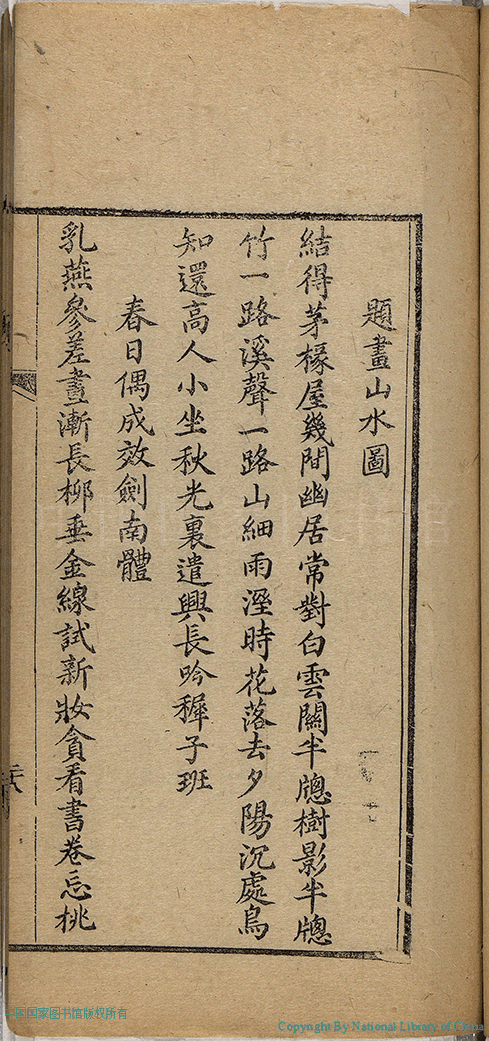 題畫山水圖
結得茅椽屋幾間幽居常對白雲關半牕樹影半牕
竹一路溪聲一路山細雨溼時花落去夕陽沉處鳥
知還高人小坐秋光裏遣興長吟穉子班
春日偶成效劍南體
乳燕參差晝漸長柳垂金線試新妝貪看書卷忘桃
中国国家图书馆版权所有
Copyright By National Library of China